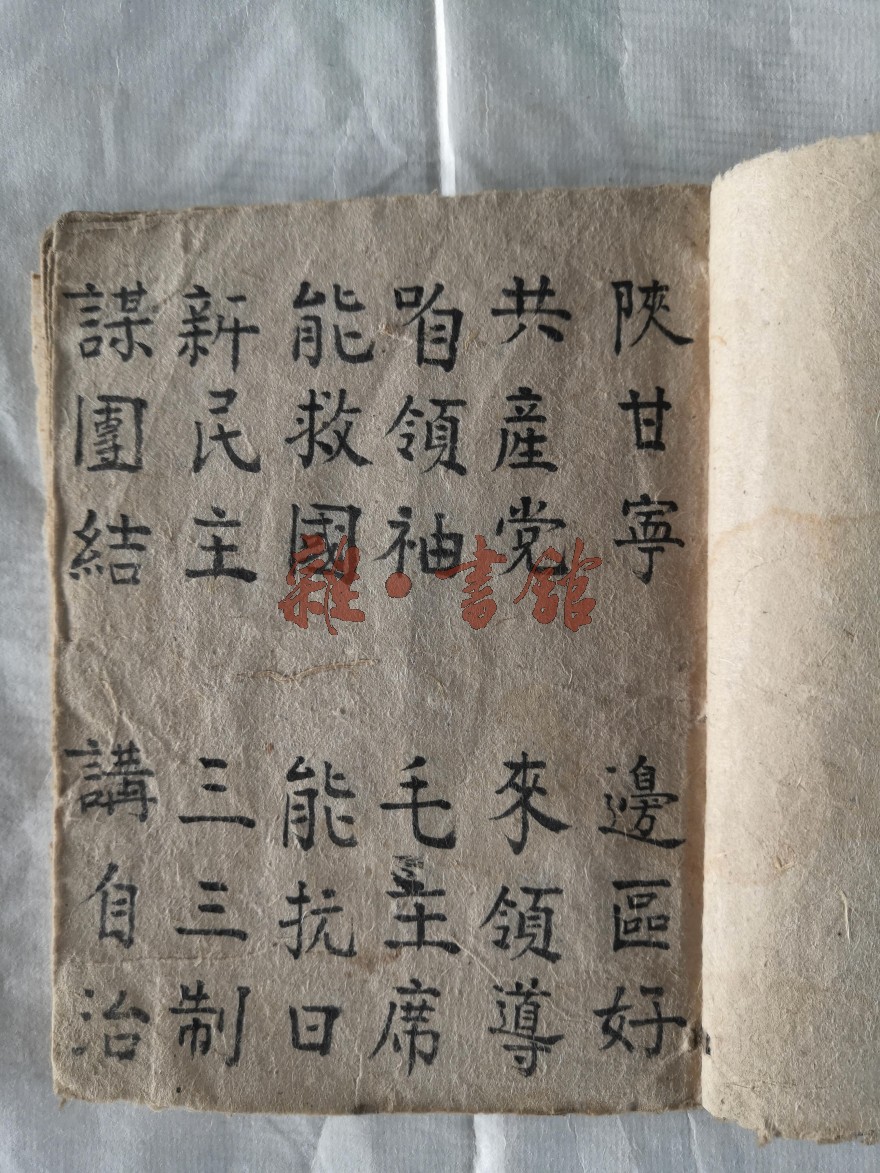 陝甘寧 邊區好
共産党 來領導
咱領袖 毛主席
能救國 能抗日
新民主 三三制
謀團結 講自治
雜·書館